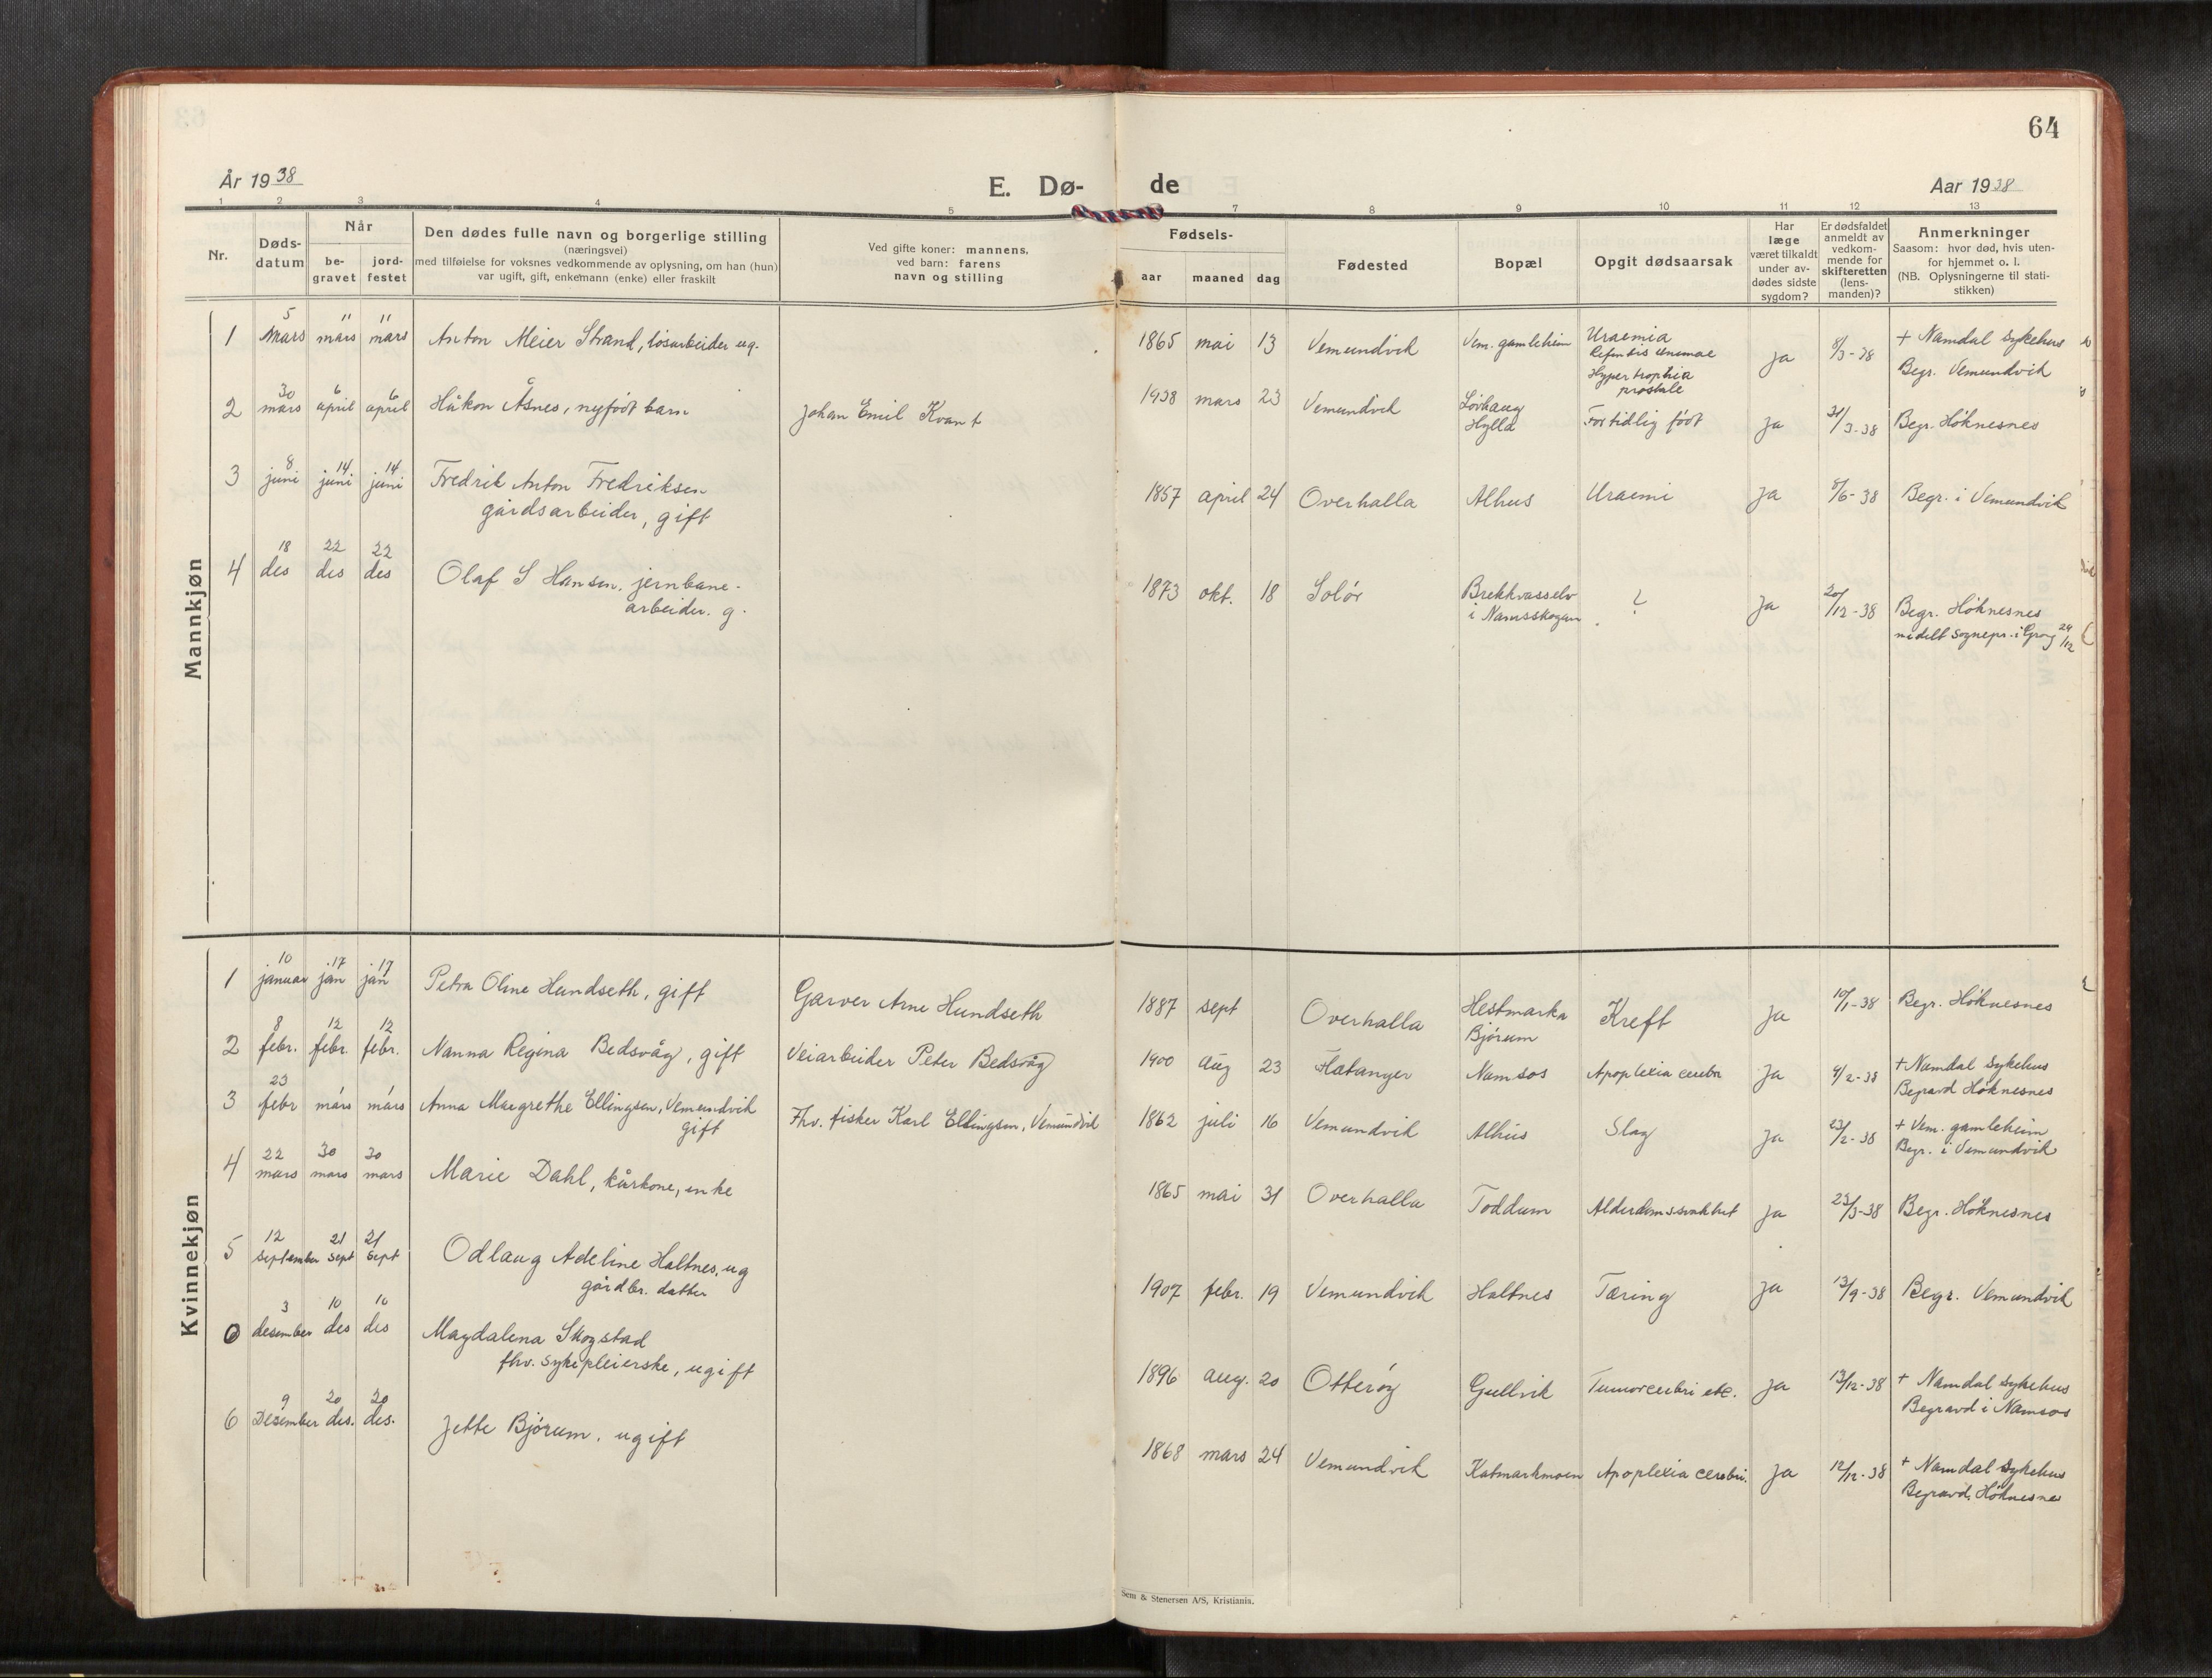 64
År 1938
E. Dø-
de
Aar 1938
1 2 3 4 5 7 8 9 10 11 12 13
Nr.
Døds-
datum
Når
be-
gravet
jord-
festet
Den dødes fulle navn og borgerlige stilling
(næringsvei)
med tilføielse for voksnes vedkommende av oplysning, om han (hun)
var ugift, gift, enkemann (enke) eller fraskilt
Ved gifte koner: mannens,
ved barn: farens
navn og stilling
Fødsels-
aar maaned dag
Fødested
Bopæl
Opgit dødsaarsak
Har
læge
været tilkaldt
under av-
dødes sidste
sygdom?
Er dødsfaldet
anmeldt av
vedkom-
mende for
skifteretten
(lens-
manden)?
Anmerkninger
Saasom: hvor død, hvis uten-
for hjemmet o. l.
(NB. Oplysningerne til stati-
stikken)
Mannkjøn
1 5 mars 11 mars 11 mars Anton Meier Strand, løsarbeider ug. 1865 mai 13 Vemundvik Vem. gamleheim Uraemia
Hypertrophia
prostatae
Ja 8/3-38 + Namdal sykehus
Begr. Vemundvik
2 30 mars 6 april 6 april Håkon Åsnes, nyfødt barn Johan Emil Kvant 1938 mars 23 Vemundvik Løvhaug
Hylla
For tidlig født Ja 31/3-38 Begr. Høknesnes
3 8 juni 14 juni 14 juni Fredrik Anton Fredriksen
gårdsarbeider, gift
1857 april 24 Overhalla Alhus Uraemi Ja 8/6-38 Begr. i Vemundvik
4 18 des 22 des 22 des Olaf S Hansen, jernbane-
arbeider. g.
1873 okt. 18 Solør Brekkvasselv
i Namsskogan
? Ja 20/12-38 Begr. Høknesnes
medelt sognepr. i Grong 24/12
Kvinnekjøn
1 10 januar 17 jan 17 jan Petra Oline Hundseth, gift Garver Arne Hundseth 1887 sept Overhalla Hestmarka
Bjørum
Kreft Ja 10/1-38 Begr. Høknesnes
2 8 febr. 12 febr. 12 febr. Nanna Regina Bedsvåg, gift Veiarbeider Peter Bedsvåg 1900 aug 23 Flatanger Namsos Apoplexia cerebri Ja 9/2-38 + Namdal sykehus
Begravd Høknesnes
3 23 febr 1 mars 1 mars Anna Margrethe Ellingsen, Vemundvik
gift
Fhv. fisker Karl Ellingsen, Vemundvik 1862 juli 16 Vemundvik Alhus Slag Ja 23/2-38 + Vem. gamleheim
Begr. i Vemundvik
4 22 mars 30 mars 30 mars Marie Dahl, kårkone, enke 1865 mai 31 Overhalla Toddum Alderdomssvakhet Ja 23/3-38 Begr. Høknesnes
5 12 september 21 sept 21 sept Odlaug Adeline Haltnes, ug
gårdbr. datter
1907 febr. 19 Vemundvik Haltnes Tæring Ja 13/9-38 Begr. Vemundvik
0 3 desember 10 des 10 des Magdalena Skogstad
fhv. sykepleierske, ugift
1896 aug. 20 Otterøy Gullvik Tumorcerebri etc. Ja 13/12-38 + Namdal sykehus
Begravd i Namsos
6 9 Desember 20 des. 20 des. Jette Bjørum, ugift 1868 mars 24 Vemundvik Katmarkmoen Apoplexia cerebri. Ja 12/12-38 + Namdal sykehus
Begravd. Høknesnes
Sem & Stenersen A/S, Kristiania.